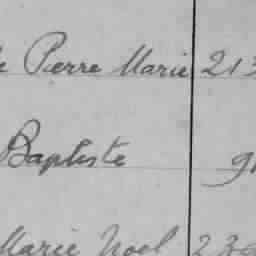 Pierre Marie 213
Baptiste
Marie Noel 23